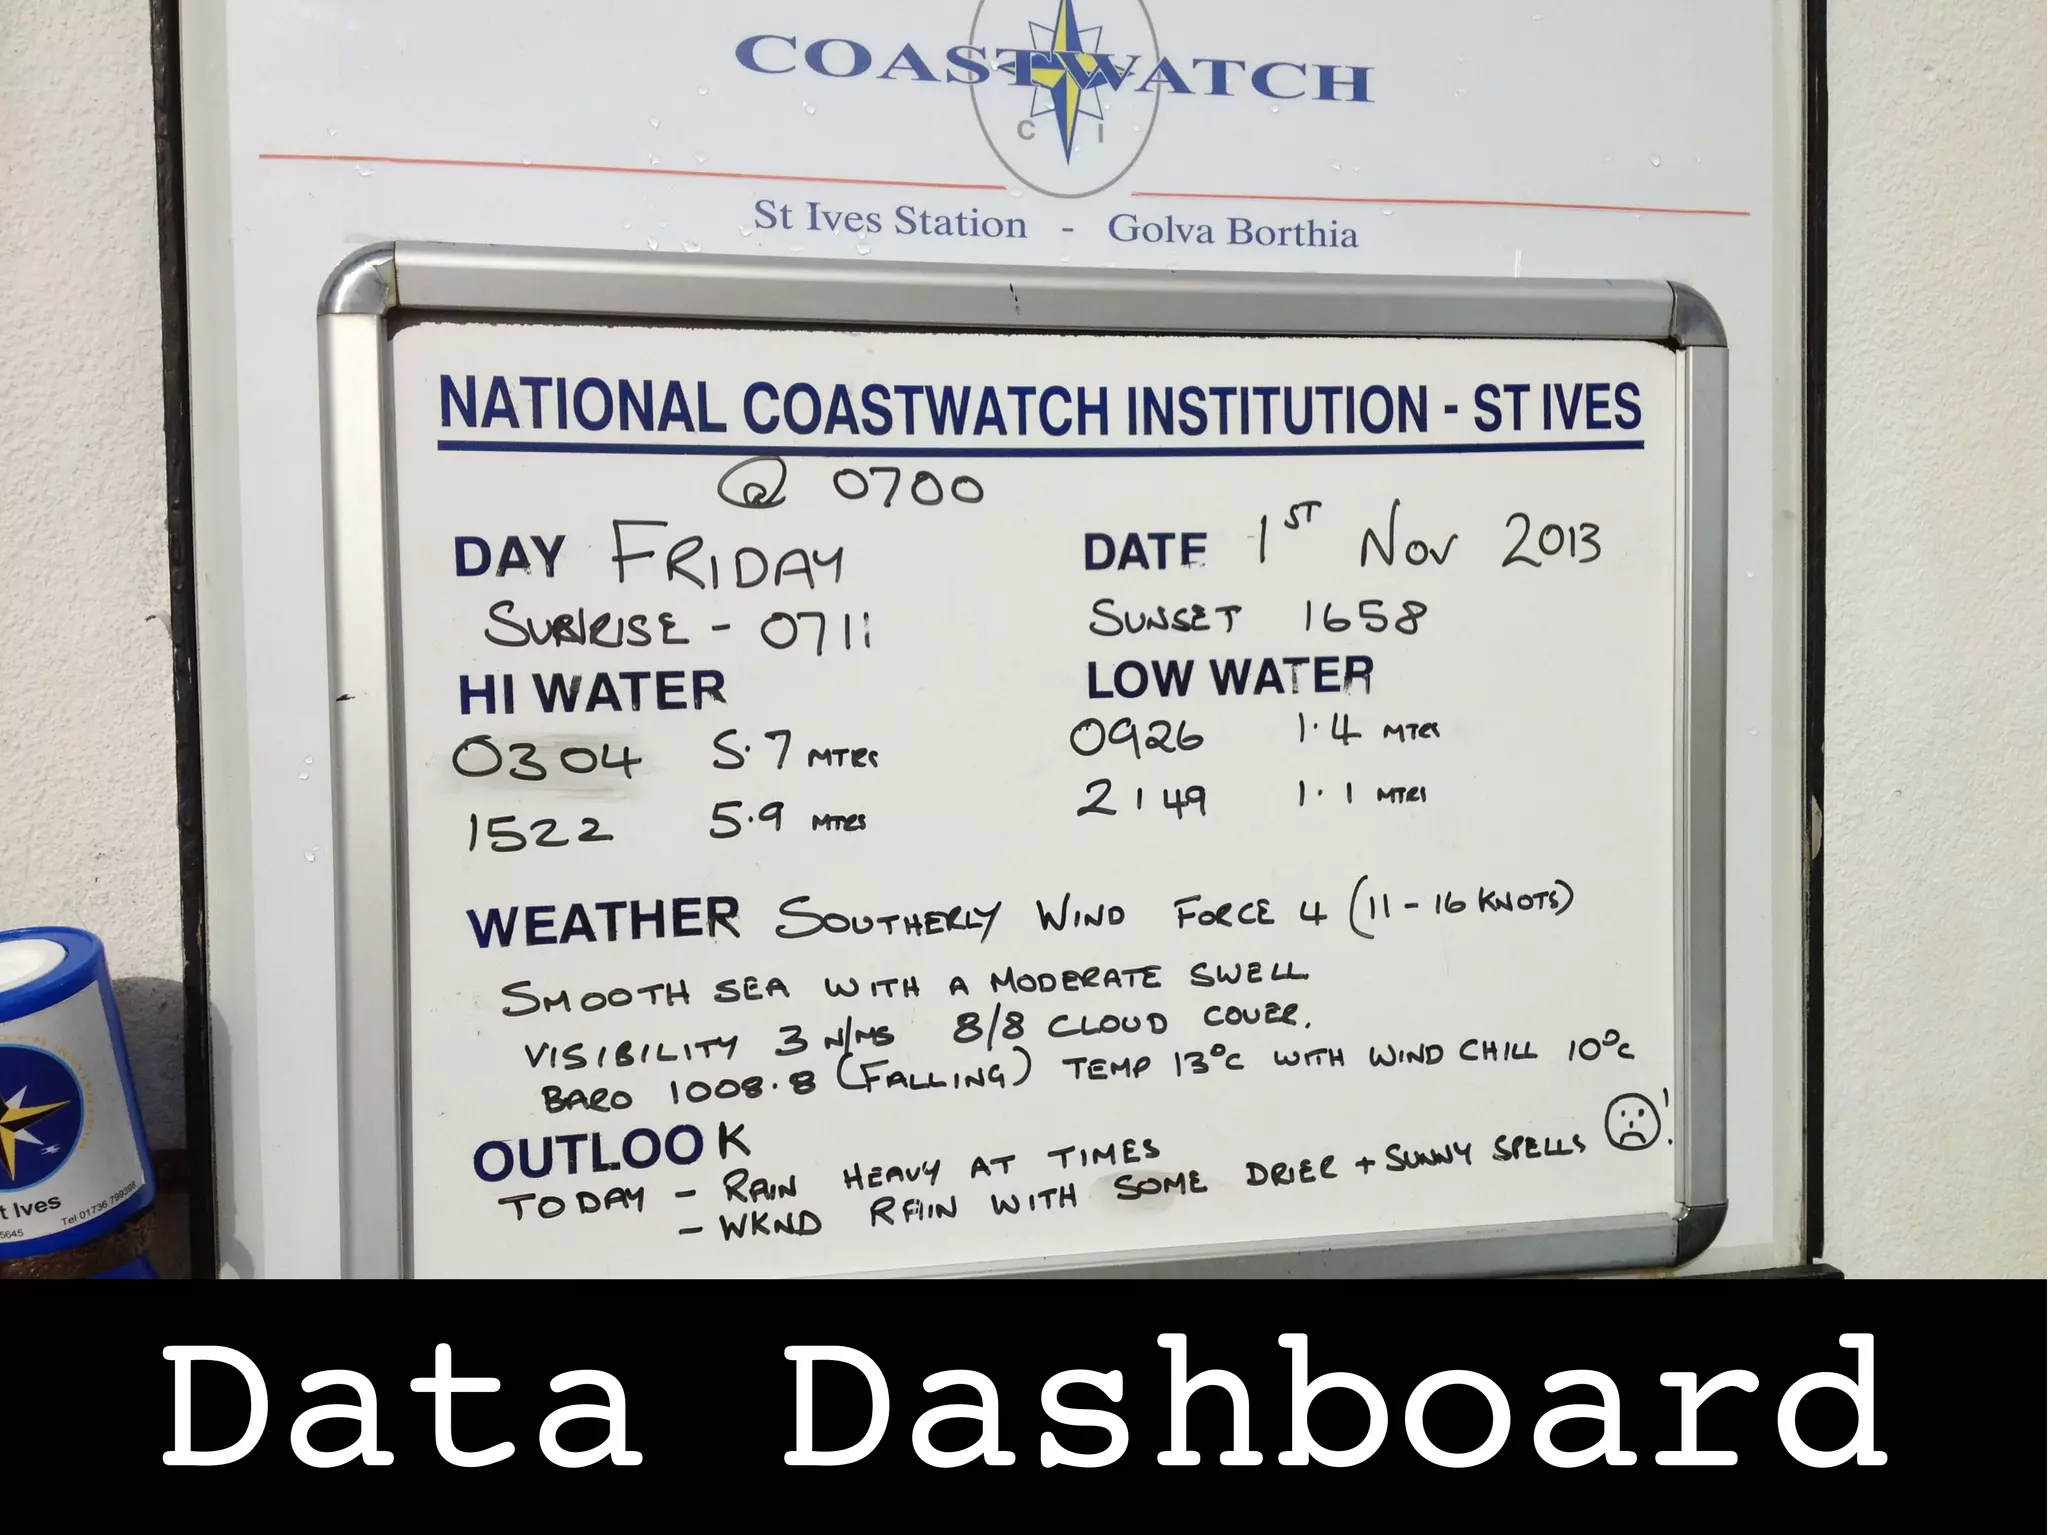 COASTWATCH
C I
St Ives Station - Golva Borthia
NATIONAL COASTWATCH INSTITUTION - ST IVES
@ 0700
DAY FRIDAY DATE 1ST NOV 2013
SUNRISE - 0711 SUNSET 1658
HI WATER LOW WATER
0304 5.7 MTRS 0926 1.4 MTRS
1522 5.9 MTRS 2149 1.1 MTRS
WEATHER SOUTHERLY WIND FORCE 4 (11-16 KNOTS)
SMOOTH SEA WITH A MODERATE SWELL
VISIBILITY 3 N/MS 8/8 CLOUD COVER.
BARO 1008.8 (FALLING) TEMP 13°C WITH WIND CHILL 10°C
OUTLOOK
TODAY - RAIN HEAVY AT TIMES
- WKND RAIN WITH SOME DRIER + SUNNY SPELLS !
t Ives
5645 Tel 01736 799398
Data Dashboard